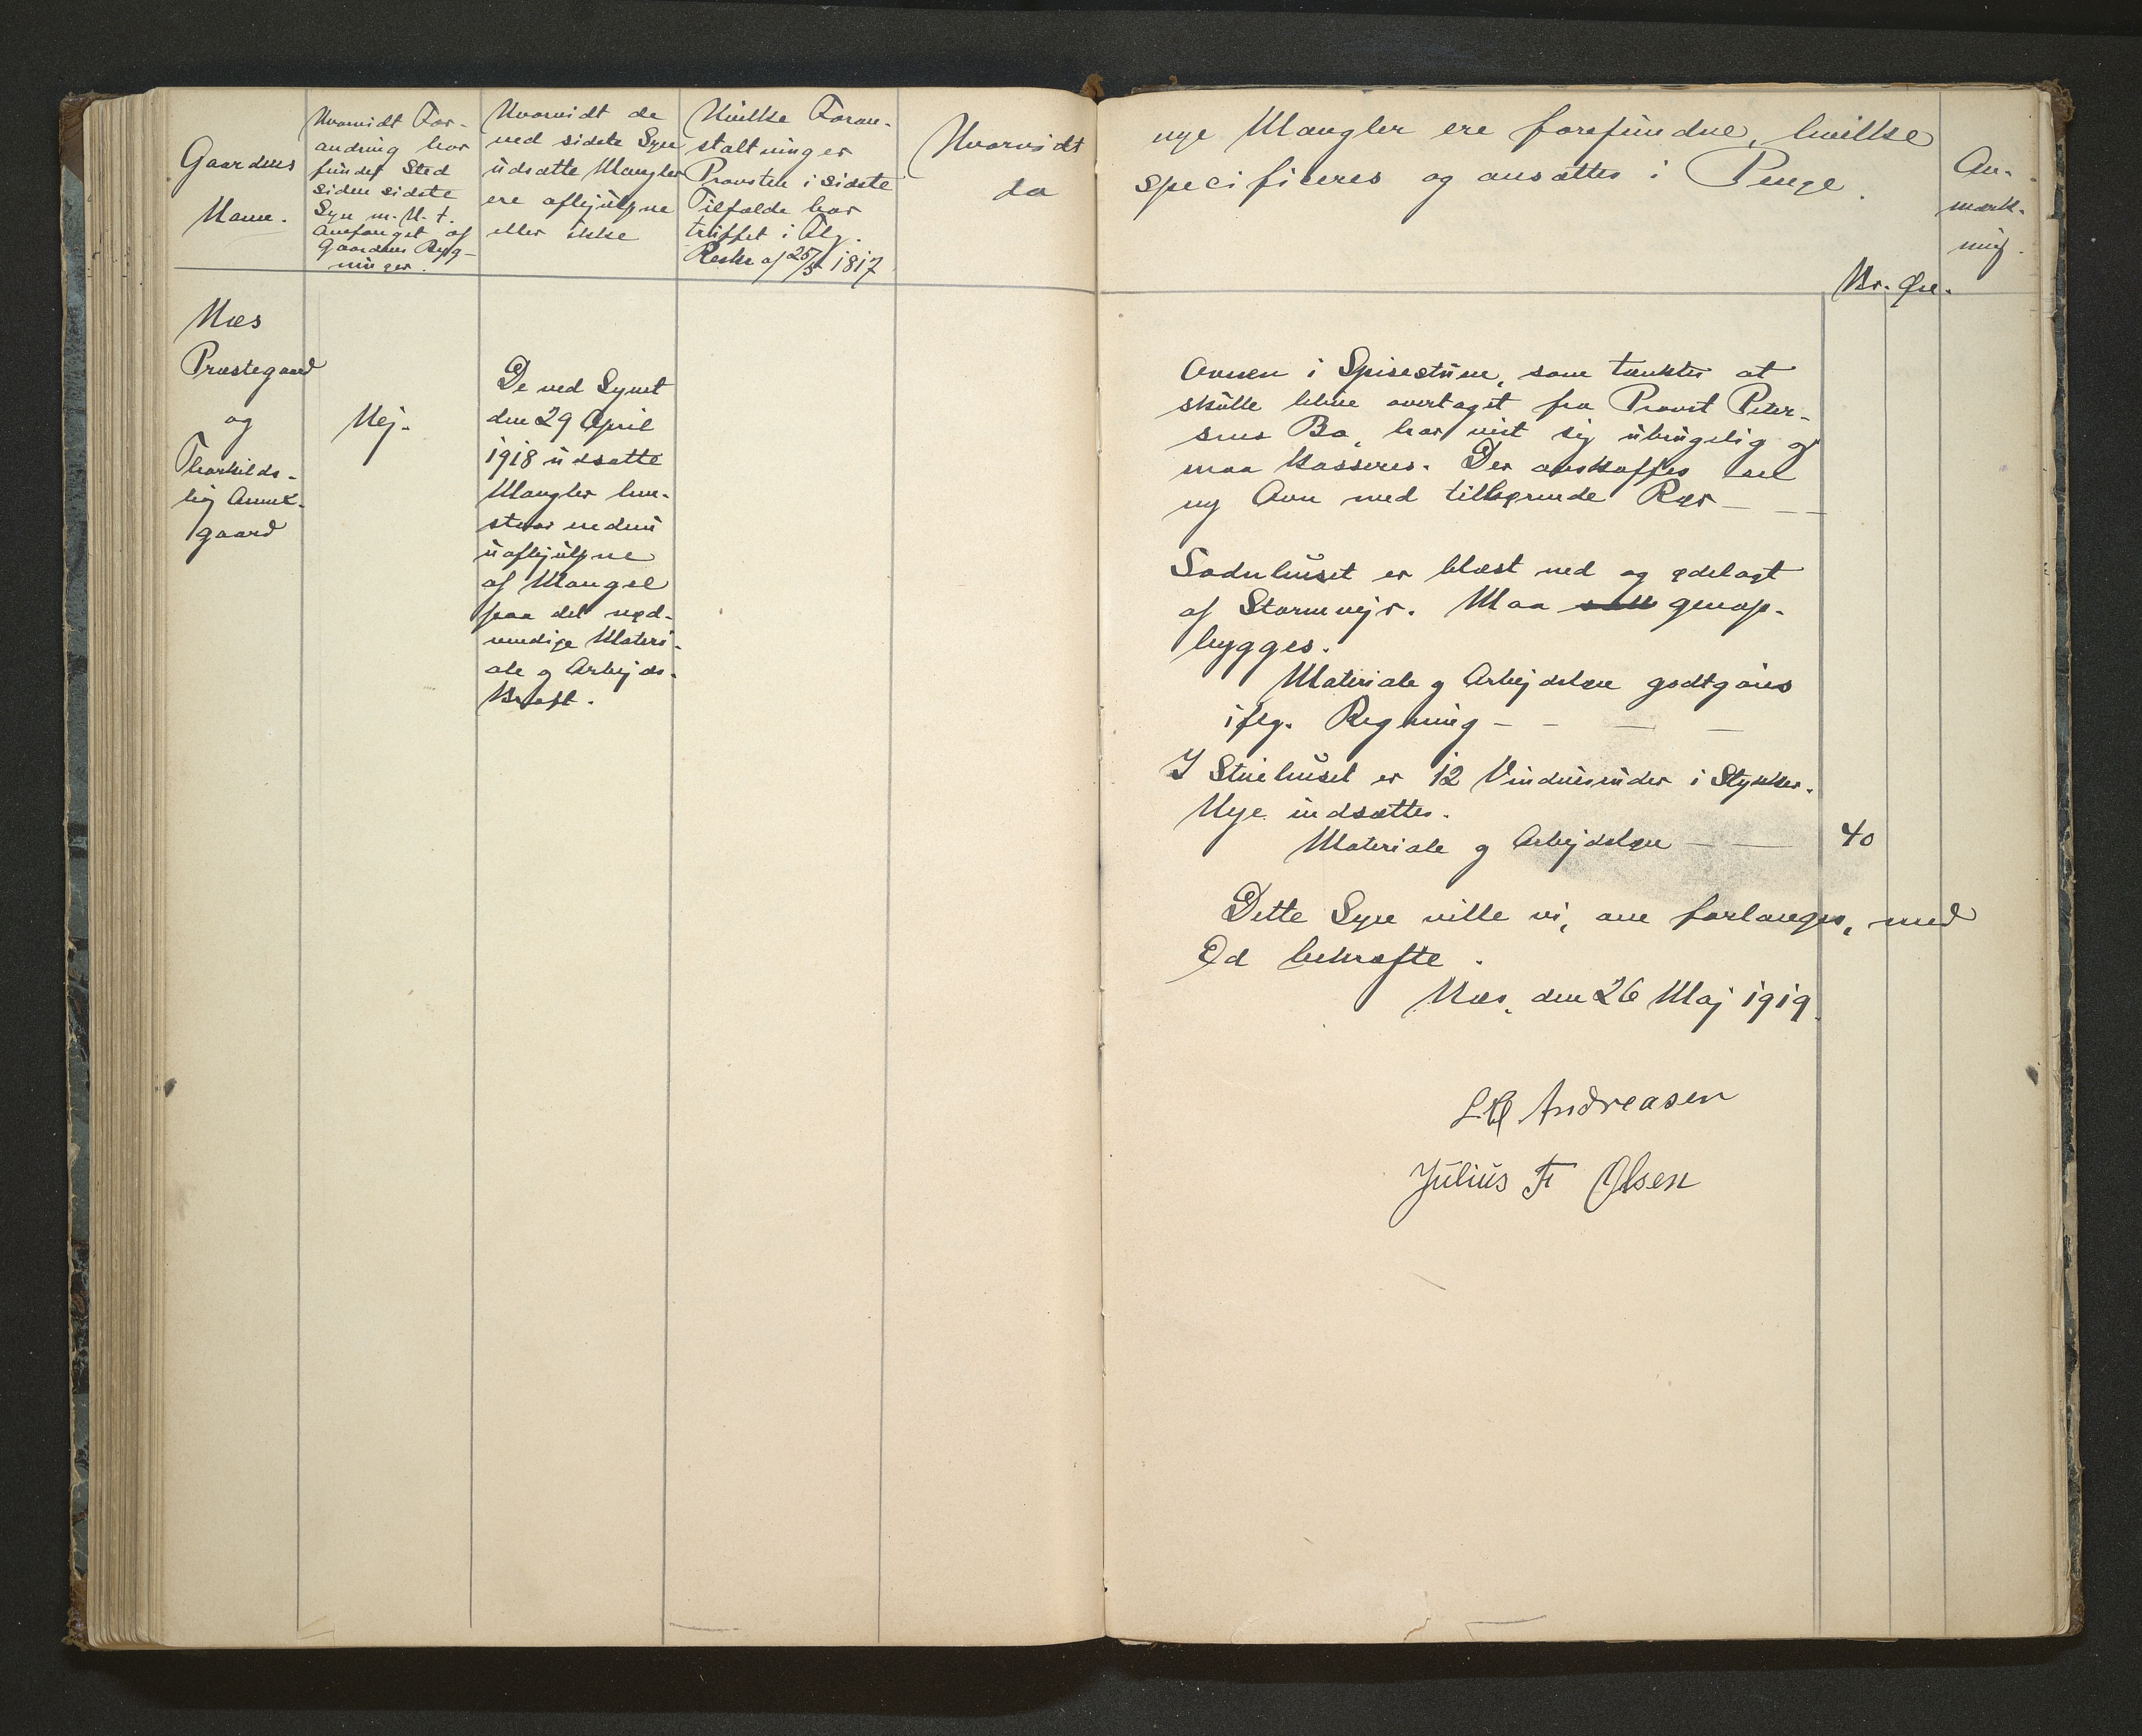 Gaardens
Navn.
Hvorvidt For-
andring har
fundet Sted
siden sidste
Syn m. H. t.
Omfanget af
Gaardens Byg-
ninger.
Hvorvidt de
ved sidste Syn
udsatte Mangler
ere afhjulpne
eller ikke
Hvilke Foran-
staltninger
Provsten i sidste
Tilfælde har
truffet i Flg.
Reskr. af 25/5 1817
Hvorvidt
da
nye Mangler ere forefundne, hvilke
specificeres og ansættes i Penge.
An-
mærk-
ning.
Kr. Øre.
Næs
Præstegaard
og
Thorkilds-
høj Annex-
gaard
Nej.
De ved Synet
den 29 April
1918 udsatte
Mangler hen-
staar endnu
uafhjulpne
af Mangel
paa det nød-
vendige Materi-
ale og Arbejds-
kraft.
Ovnen i Spisestuen, som tænktes at
skulle blive overtaget fra Provst Peter-
sens Bo, har vist sig ubrugelig og
maa kasseres. Der anskaffes en
ny Ovn med tilhørende Rør - - -
Lodnhuset er blæst ned og ødelagt
af Stormvejr. Maa genop-
bygges.
Materiale og Arbejdsløn godtgøres
iflg. Regning - - - -
I Stuehuset er 12 Vinduesruder i Stykker.
Nye indsættes.
Materiale og Arbejdsløn - - 40
Dette Syn ville vi, om forlanges, med
Ed bekræfte.
Næs, den 26 Maj 1919.
Andreasen
Julius Fr Olsen